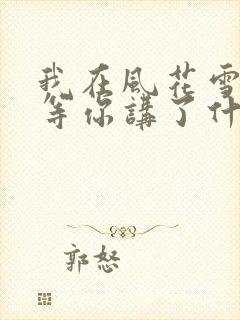 我在風花雪
等你講了什
郭怒